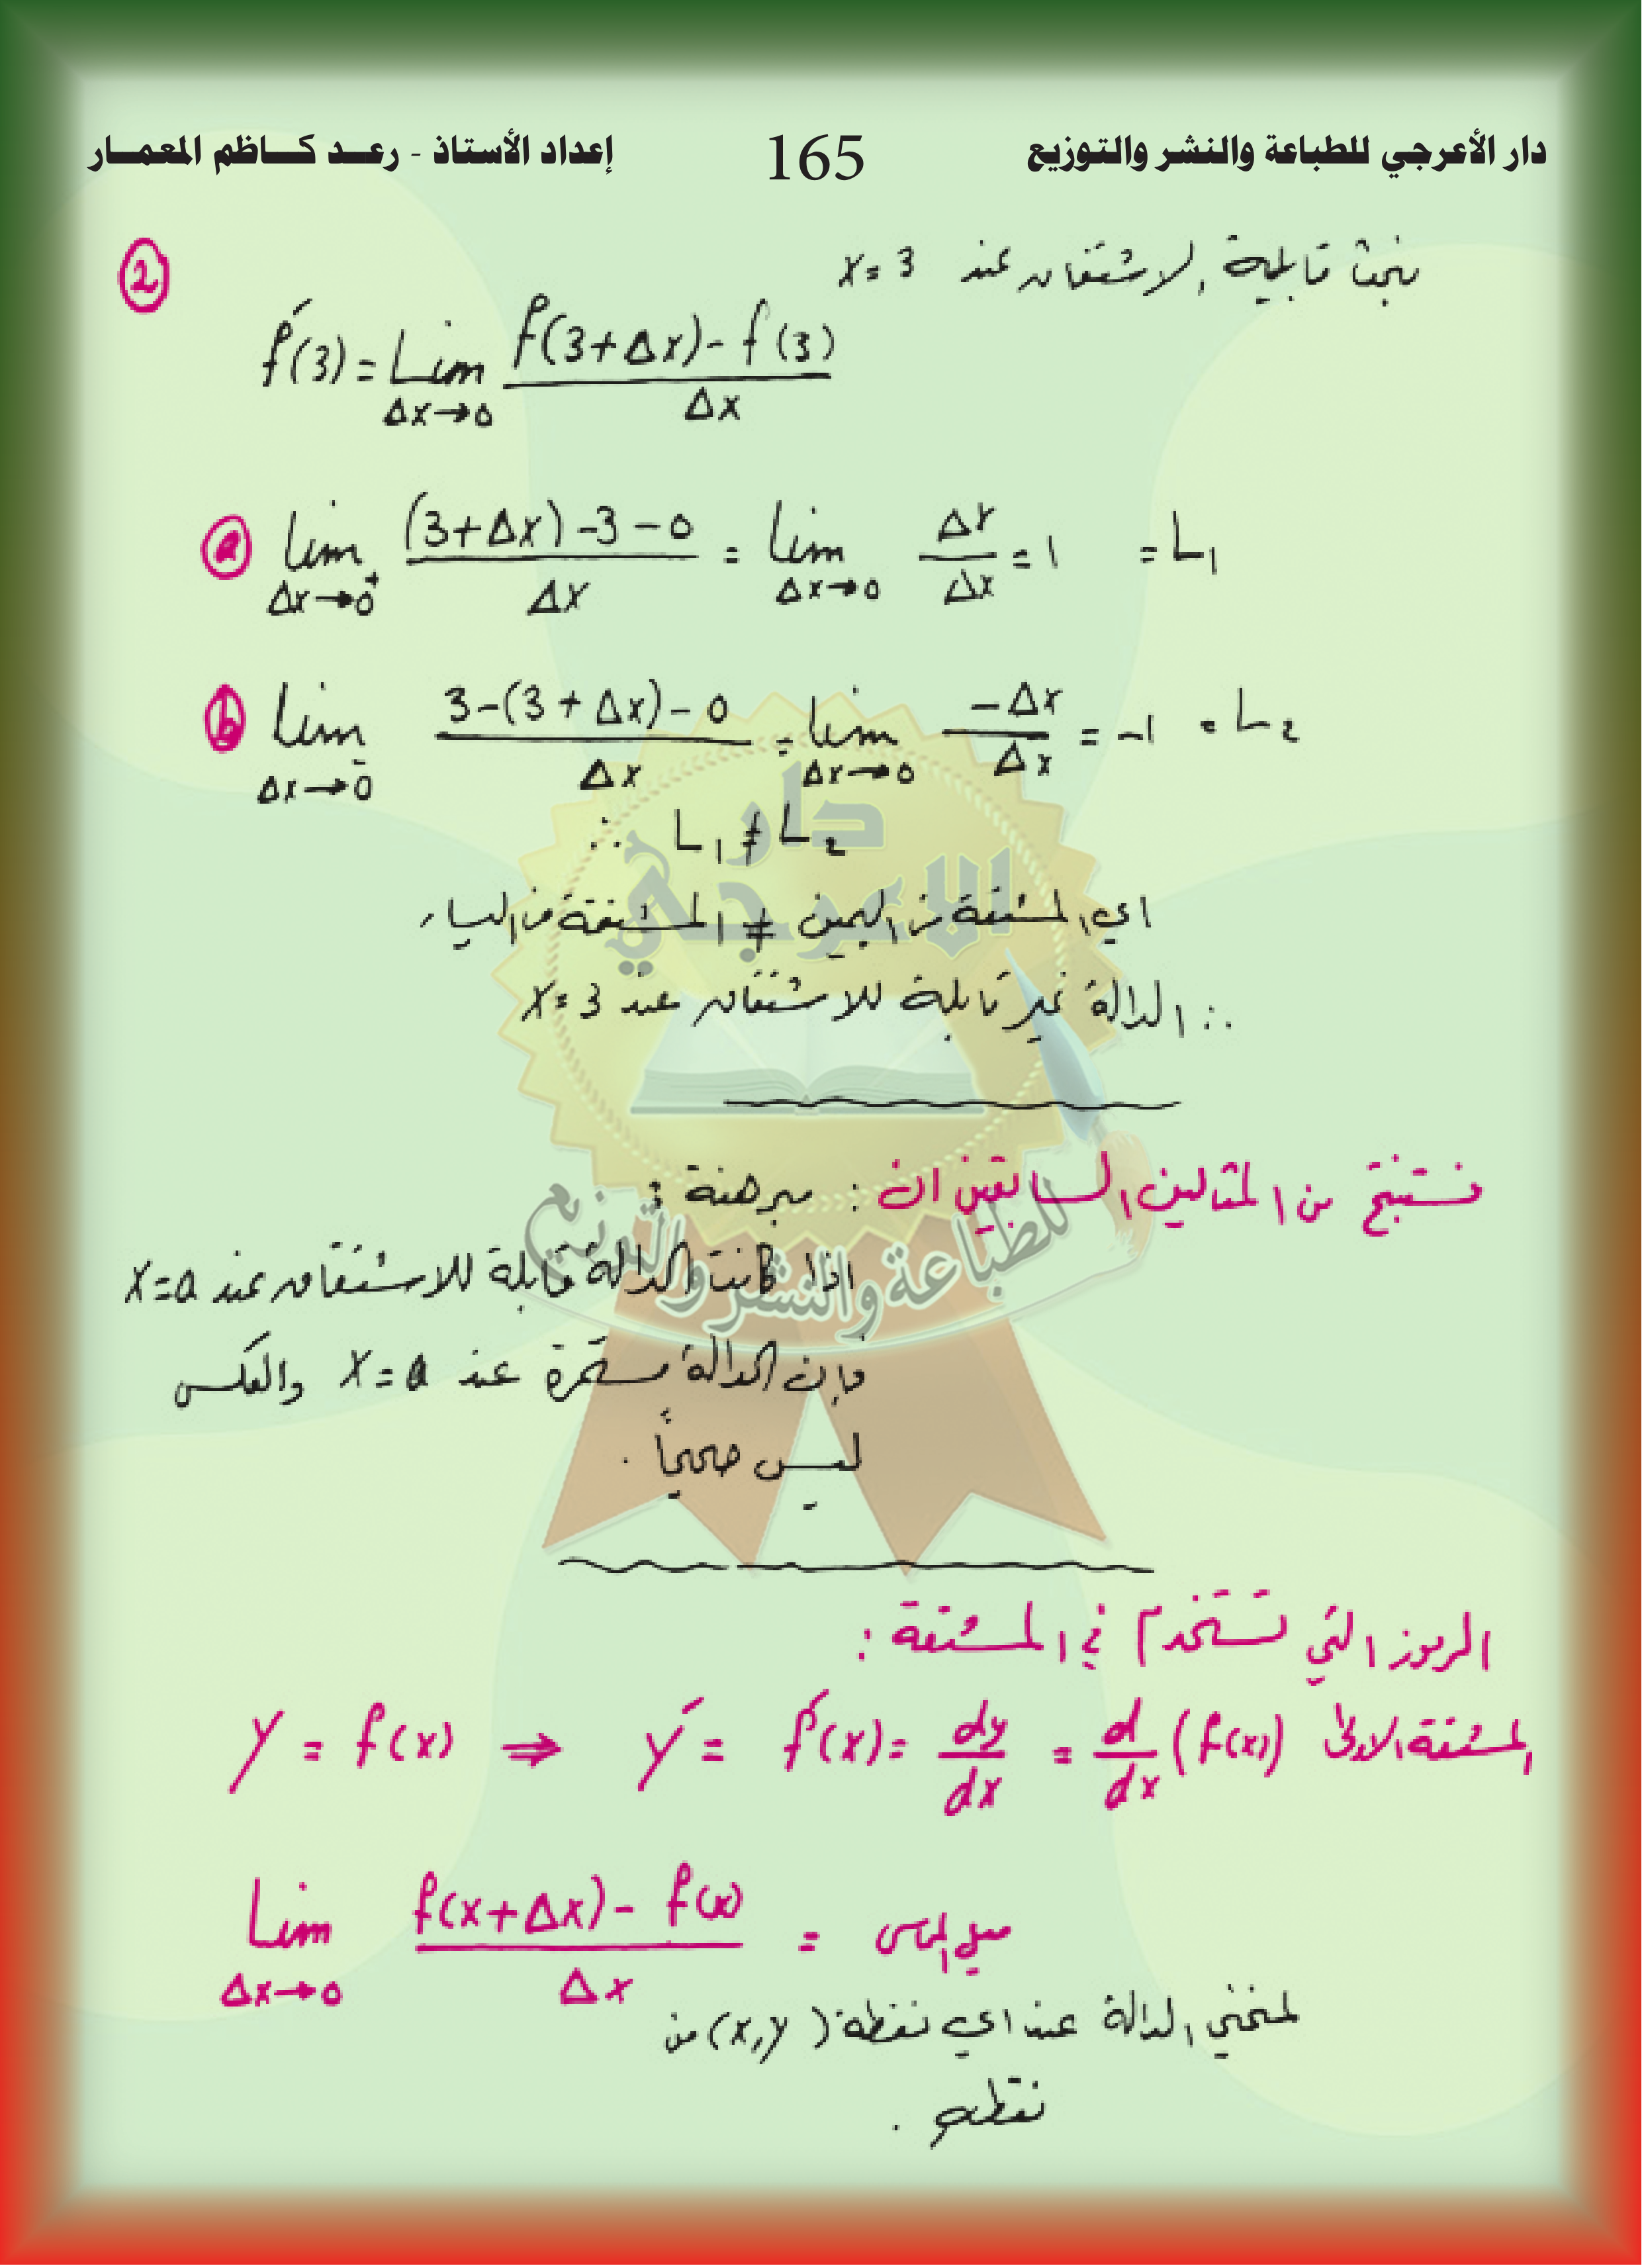 دار الأعرجي للطباعة والنشر والتوزيع 165 إعداد الأستاذ - رعد كاظم المعمار
② نبحث قابلية الاشتقاق عند x = 3
f́(3) = Lim Δx→0 f(3+Δx) - f(3) / Δx
ⓐ Lim Δx→0⁺ (3+Δx) -3 -0 / Δx = Lim Δx→0 Δx / Δx = 1 = L₁
ⓑ Lim Δx→0⁻ 3-(3+Δx) - 0 / Δx = Lim Δx→0 -Δx / Δx = -1 = L₂
∴ L₁ ≠ L₂
اي المشتقة من اليمين ≠ المشتقة من اليسار
∴ الدالة غير قابلة للاشتقاق عند x = 3
نستنتج من المثالين السابقين ان : مبرهنة :
اذا كانت الدالة قابلة للاشتقاق عند x = a
فإن الدالة مستمرة عند x = a والعكس
ليس صحيحاً .
الرموز التي تستخدم في المشتقة :
المشتقة الاولى y = f(x) ⇒ ý = f́(x) = dy/dx = d/dx (f(x))
Lim Δx→0 f(x+Δx) - f(x) / Δx = ميل المماس
لمنحني الدالة عند اي نقطة (x,y) من
نقطه .
دار
الاعرجي
للطباعة والنشر والتوزيع